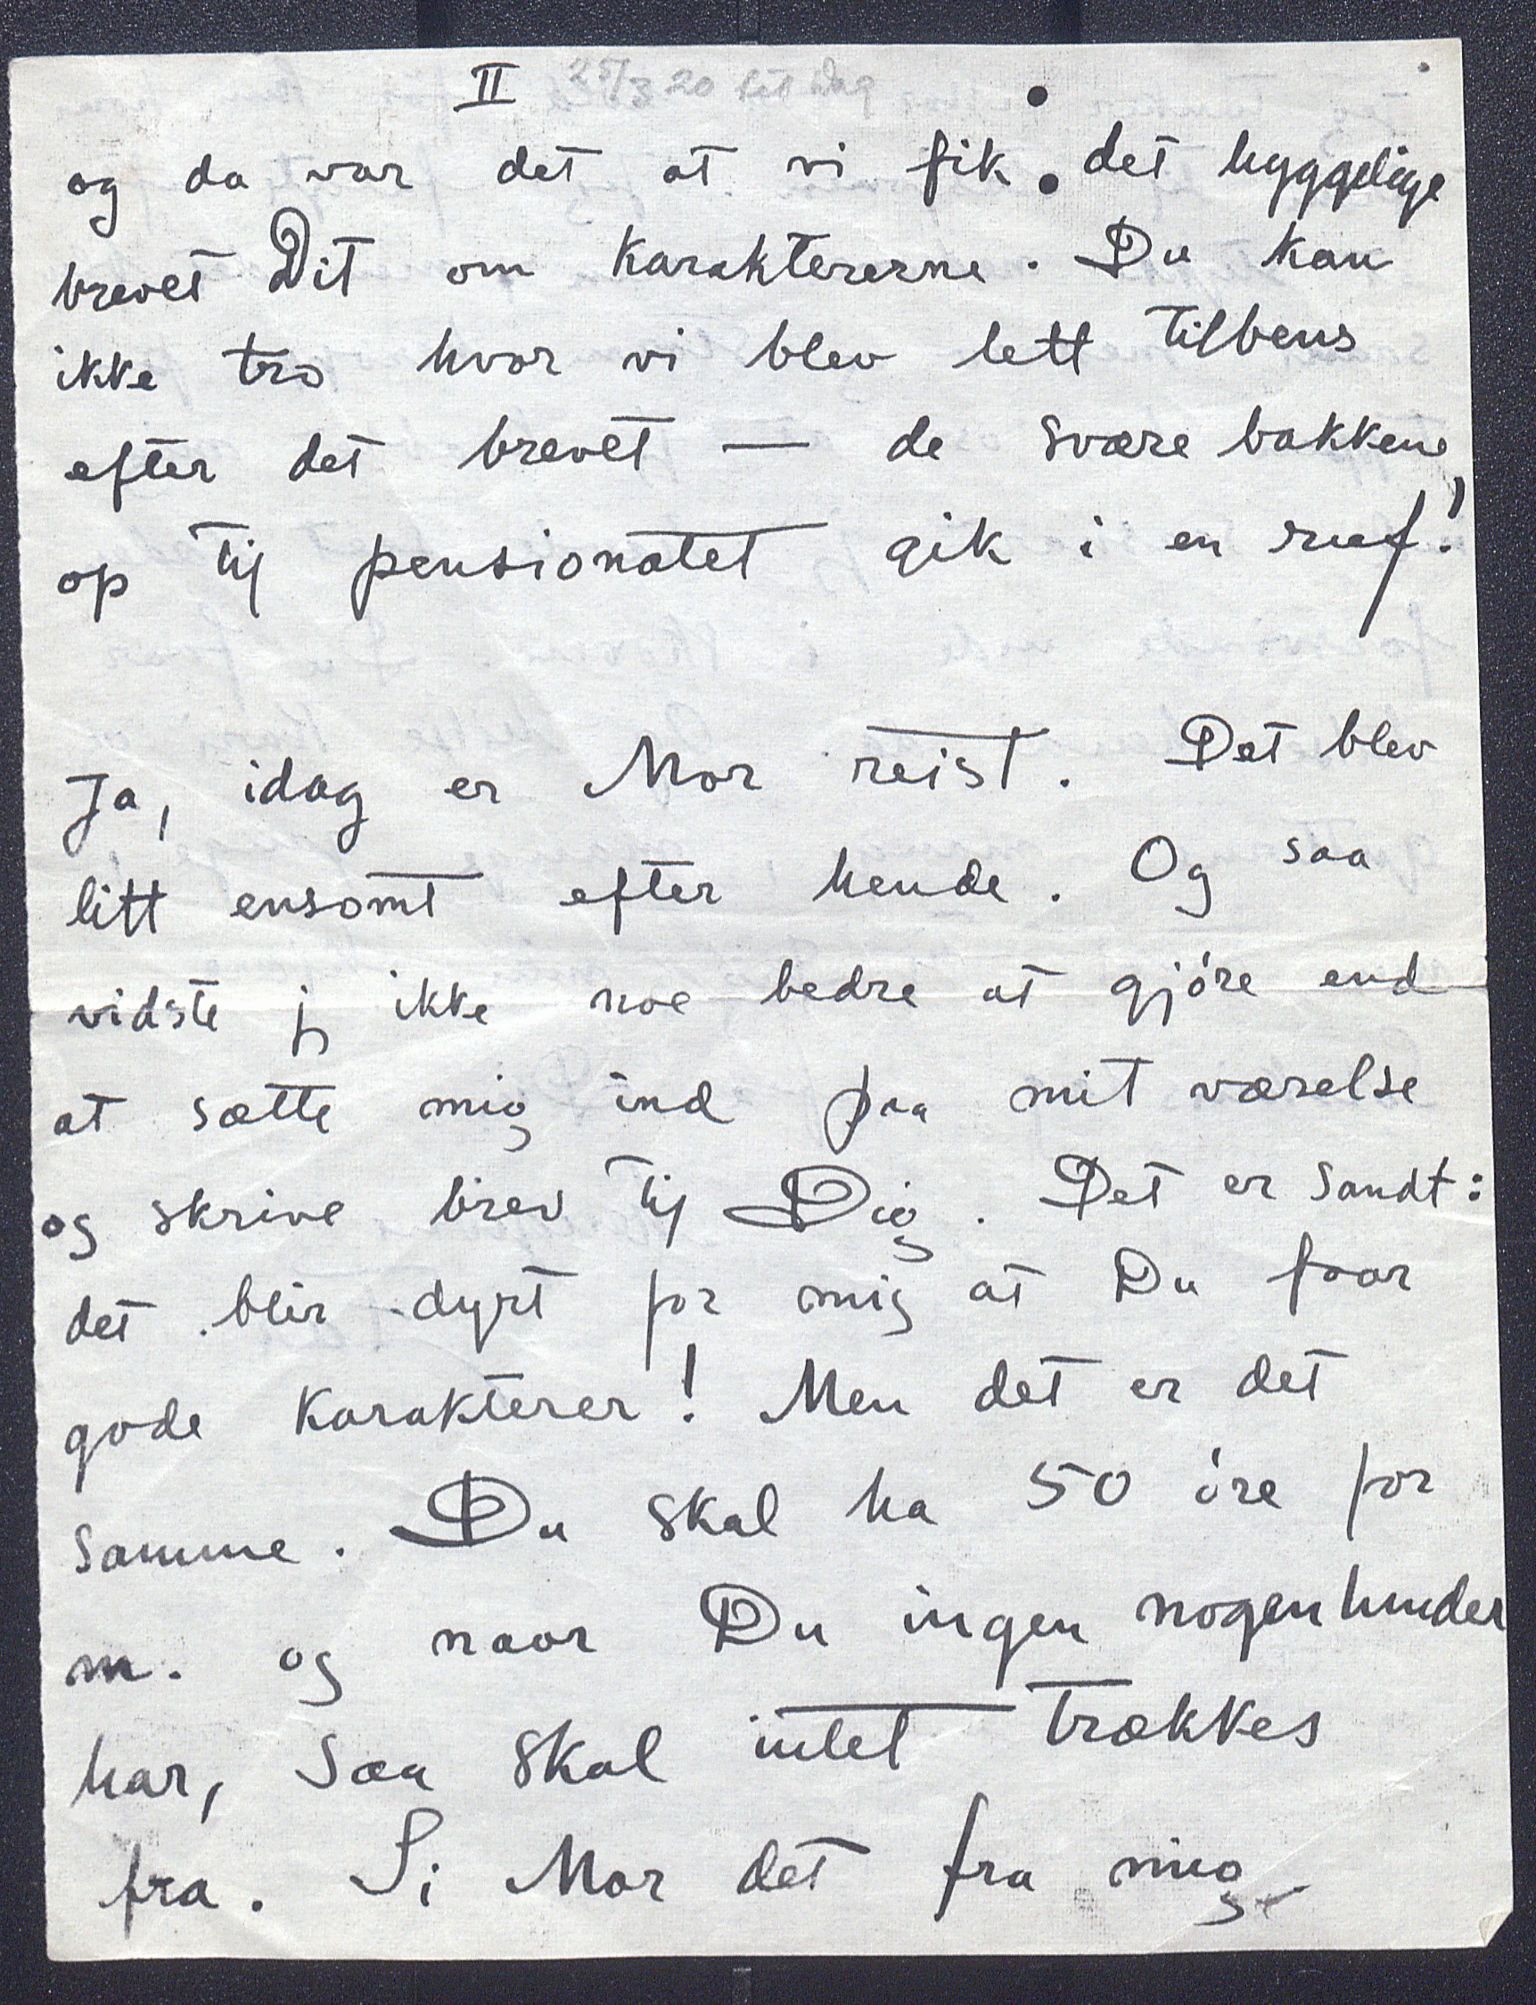 II 25/3 20 
og da var det at vi fik det hyggelige
brevet Dit om karaktererne. Du kan
ikke tro hvor vi blev lett tilbens
efter det brevet — de svære bakkene
op til pensionatet gik i en ruf!
Ja, idag er Mor reist. Det blev
litt ensomt efter hende. Og saa
vidste jeg ikke noe bedre at gjøre end
at sætte mig ind paa mit værelse
og skrive brev til Dig. Det er sandt:
det blir dyrt for mig at Du faar
gode karakterer! Men det er det
samme. Du skal ha 50 øre for
m. og naar Du ingen nogenhunder
har, saa skal intet trækkes
fra. Si Mor det fra mig